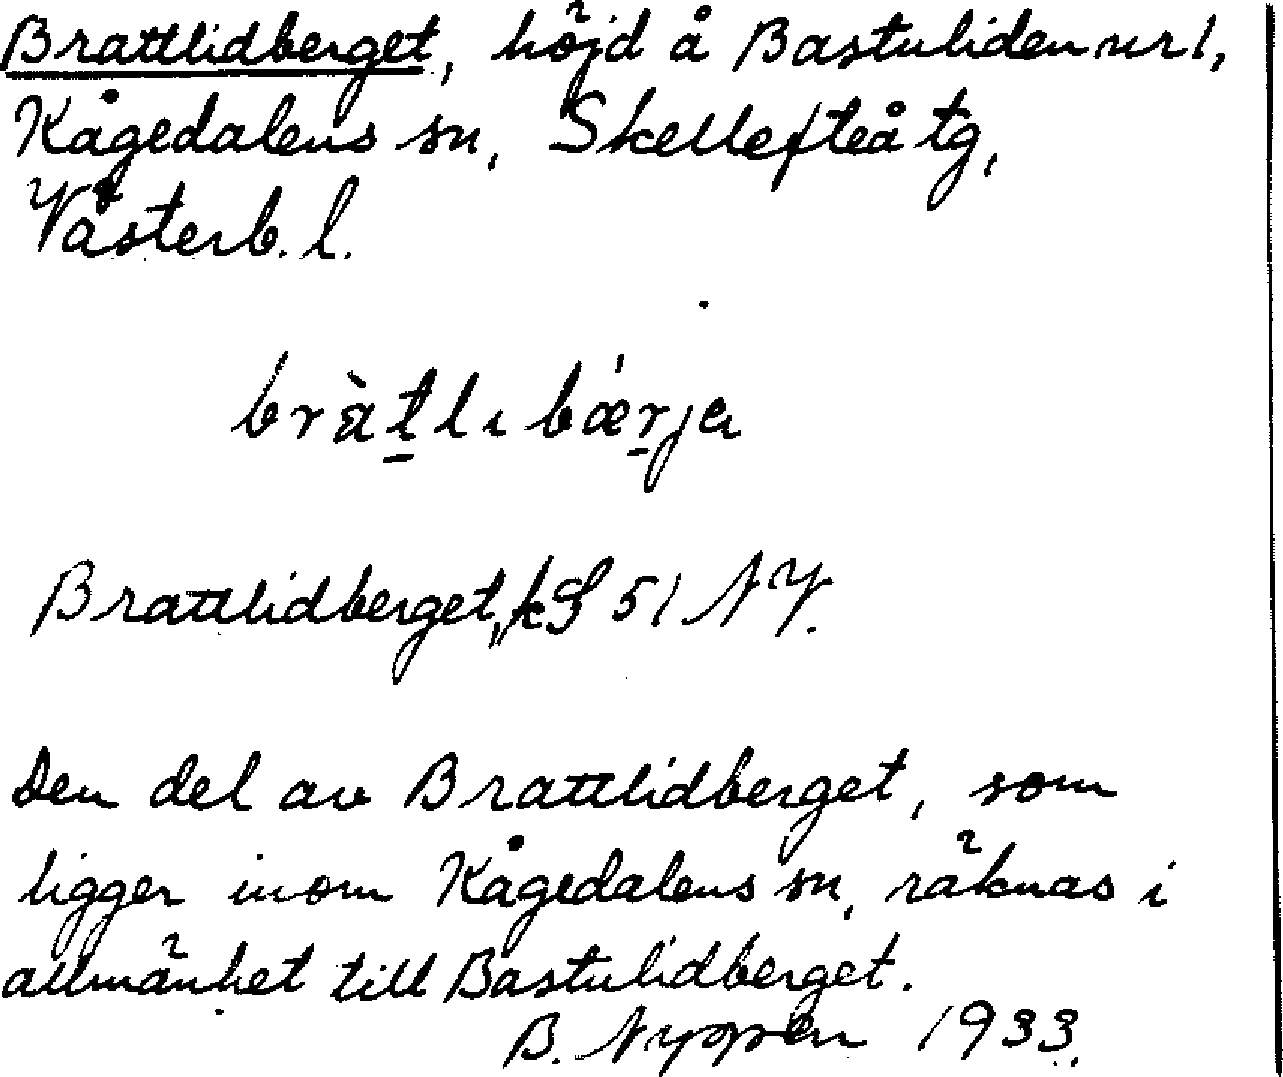 Brattlidberget, höjd å Bastuliden nr 1,
Kågedalens sn, Skellefteå tg,
Västerb. l.
bràt̲lı bǽr̲ja
Brattlidberget, kS 51 NV.
Den del av Brattlidberget, som
ligger inom Kågedalens sn, räknas i
allmänhet till Bastulidberget.
B. Nyppen 1933.